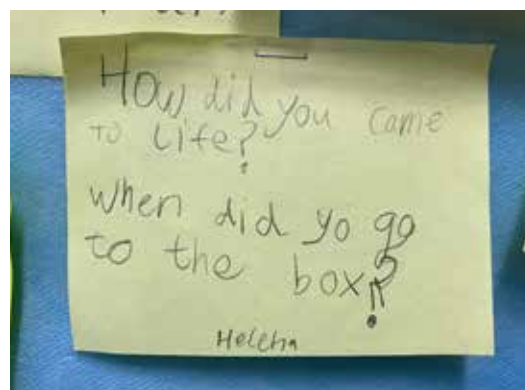 How did you came
to life?
when did yo go
to the box?
Helena